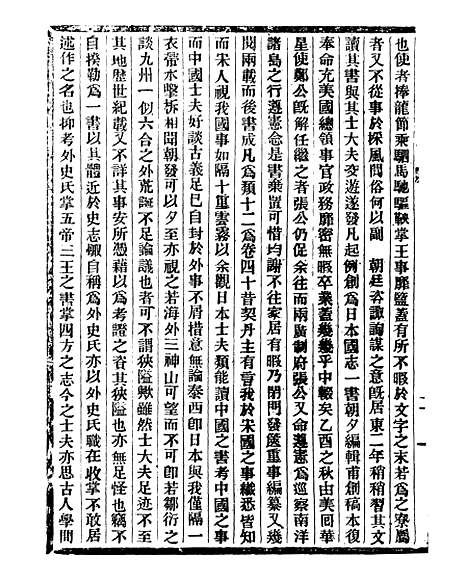 也使者捧龍節乘駟馬馳驅鞅掌王事靡盬蓋有所不暇於文字之末若爲之寮屬
者又不從事於採風問俗何以副　朝廷咨諏詢謀之意旣居東二年稍稍習其文
讀其書與其士大夫交遊遂發凡起例創爲日本國志一書朝夕編輯甫創稿本復
奉命充美國總領事官政務靡密無暇卒業蓋幾幾乎中輟矣乙酉之秋由美回華
星使鄭公旣解任繼之者張公仍促余往而兩廣制府張公又命遵憲爲巡察南洋
諸島之行遵憲念是書棄置可惜均謝不往家居有暇乃閉門發篋重事編纂又幾
閱兩載而後書成凡爲類十二爲卷四十昔契丹主有言我於宋國之事纖悉皆知
而宋人視我國事如隔十重雲霧以余觀日本士夫類能讀中國之書考中國之事
而中國士夫好談古義足已自封於外事不屑措意無論泰西卽日本與我僅隔一
衣帶水擊柝相聞朝發可以夕至亦視之若海外三神山可望而不可卽若鄒衍之
談九州一似六合之外荒誕不足論議也者可不謂狹隘歟雖然士大夫足迹不至
其地歷世紀載又不詳其事安所憑藉以爲考證之資其狹隘也亦無足怪也竊不
自揆勒爲一書以其體近於史志輒自稱爲外史氏亦以外史氏職在收掌不敢居
述作之名也抑考外史氏掌五帝三王之書掌四方之志今之士夫亦思古人學問